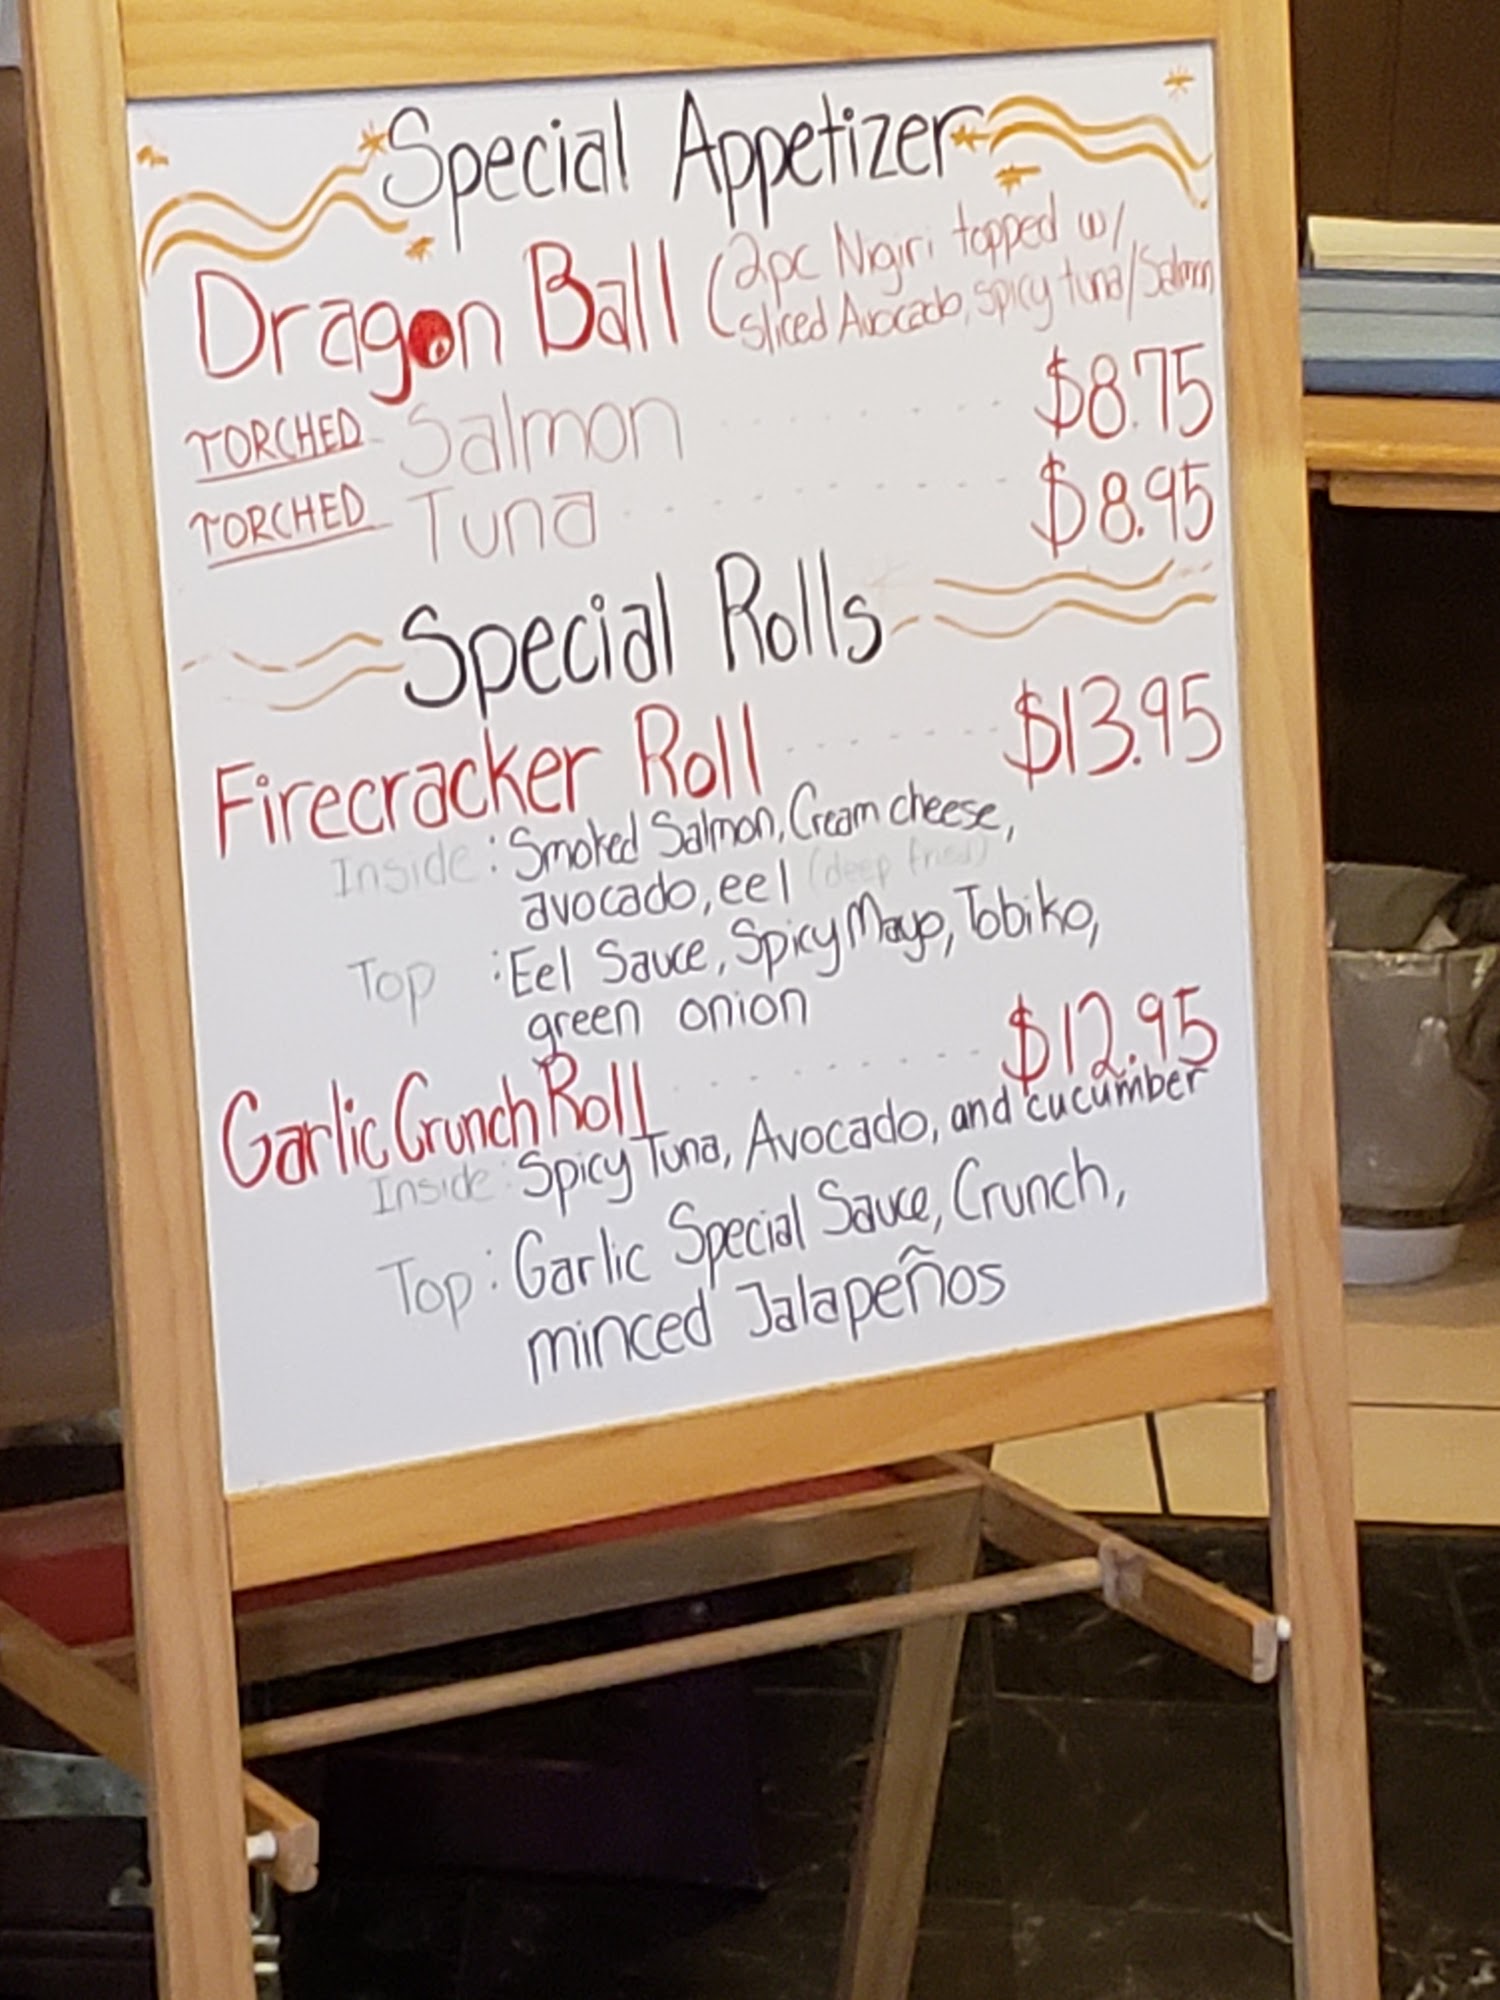 Special Appetizer
Dragon Ball (2pc Nigiri topped w/
sliced Avocado, spicy tuna/Salmon
TORCHED - Salmon $8.75
TORCHED - Tuna $8.95
Special Rolls
Firecracker Roll $13.95
Inside: Smoked Salmon, Cream cheese,
avocado, eel (deep fried)
Top: Eel Sauce, Spicy Mayo, Tobiko,
green onion
Garlic Crunch Roll $12.95
Inside: Spicy Tuna, Avocado, and cucumber
Top: Garlic Special Sauce, Crunch,
minced Jalapeños